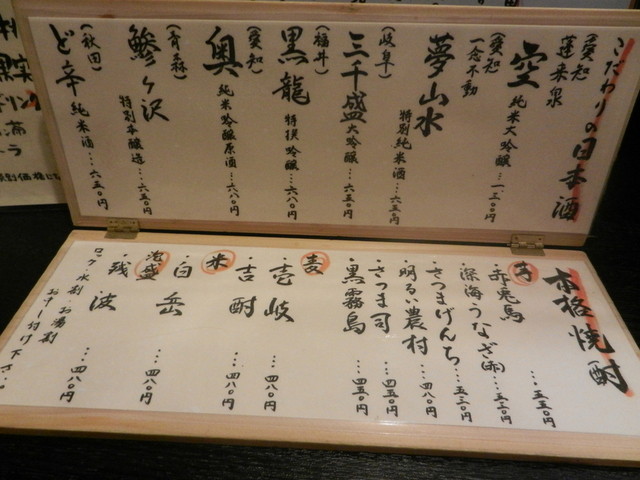 こだわりの日本酒
(愛知)
蓬莱泉
空 純米大吟醸…一三〇〇円
(愛知)
一念不動
夢山水 特別純米酒…六五〇円
(岐阜)
三千盛 大吟醸…六五〇円
(福井)
黒龍 特撰吟醸…六八〇円
(愛知)
奥 純米吟醸原酒…六八〇円
(青森)
鰺ヶ沢 特別本醸造…六五〇円
(秋田)
ど辛 純米酒…六五〇円
本格焼酎
芋
・赤兎馬 …五五〇円
・深海うなぎ(赤)…五五〇円
・さつまげんち…五三〇円
・明るい農村…四八〇円
・さつま司…四五〇円
・黒霧島…四五〇円
麦
・壱岐…四八〇円
・吉酎…四八〇円
米
・白岳…四八〇円
泡盛
・残波…四八〇円
ロック・水割・お湯割
お申し付け下さい